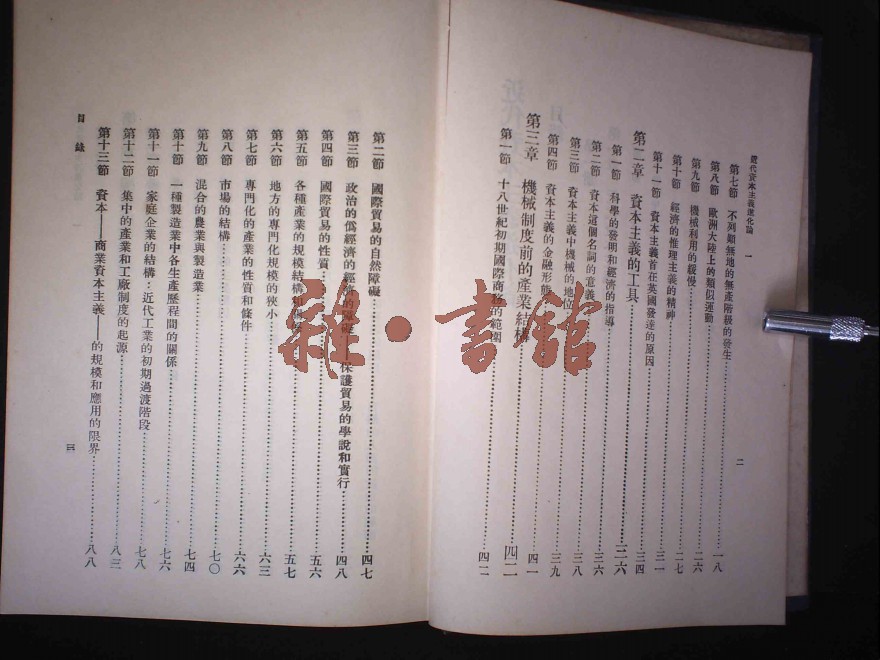 近代資本主義進化論 一
二
第七節 不列顛無地的無產階級的發生 一八
第八節 歐洲大陸上的類似運動 二六
第九節 機械利用的緩慢 二六
第十節 經濟的推理主義的精神 二七
第十一節 資本主義首在英國發達的原因 三一
第二章 資本主義的工具 三四
第一節 科學的發明和經濟的指導 三六
第二節 資本這個名詞的意義 三六
第三節 資本主義中機械的地位 三八
第四節 資本主義的金融形態 三九
第三章 機械制度前的產業結構 四一
第一節 十八世紀初期國際商務的範圍 四二
第二節 國際貿易的自然障礙 四七
第三節 政治的僞經濟的經濟的障礙——保護貿易的學說和實行 四八
第四節 國際貿易的性質 五六
第五節 各種產業的規模結構和關係 五七
第六節 地方的專門化規模的狹小 六三
第七節 專門化的產業的性質和條件 六六
第八節 市場的結構 七〇
第九節 混合的農業與製造業 七四
第十節 一種製造業中各生產歷程間的關係 七六
第十一節 家庭企業的結構：近代工業的初期過渡階段 七八
第十二節 集中的產業和工廠制度的起源 八三
第十三節 資本——商業資本主義——的規模和應用的限界 八八
目錄
三
雜·書館